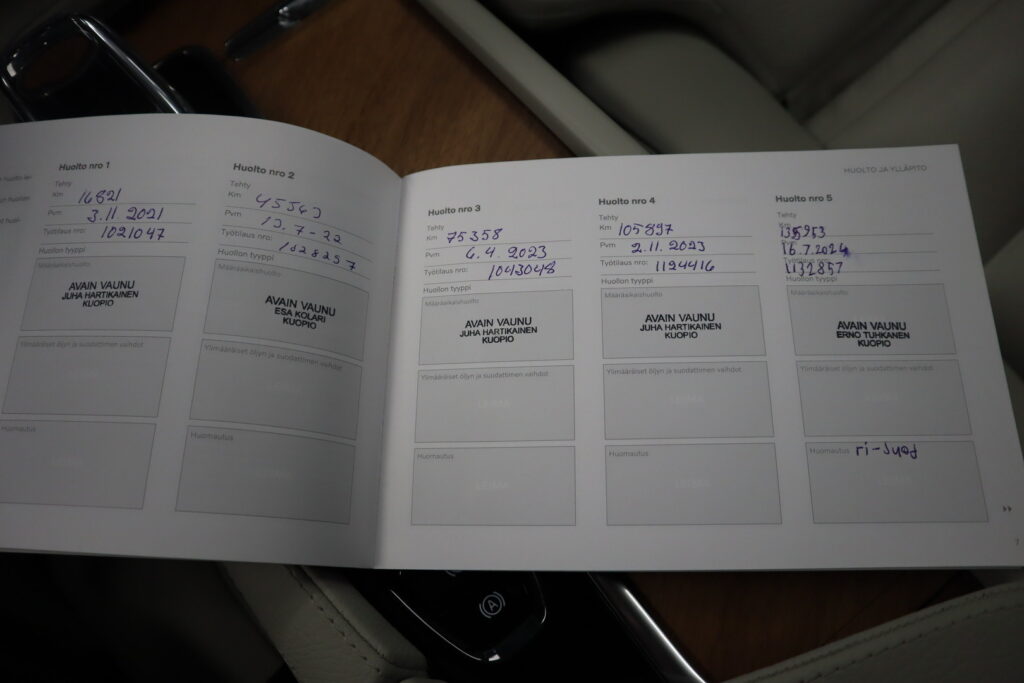 HUOLTO JA YLLÄPITO
Huolto nro 1
Tehty
Km 16821
Pvm 3.11 2021
Työtilaus nro: 1021047
Huollon tyyppi
Määräaikaishuolto
AVAIN VAUNU
JUHA HARTIKAINEN
KUOPIO
Ylimääräiset öljyn ja suodattimen vaihdot
Huomautus
Huolto nro 2
Tehty
Km 45543
Pvm 13.7-22
Työtilaus nro: 1028257
Huollon tyyppi
Määräaikaishuolto
AVAIN VAUNU
ESA KOLARI
KUOPIO
Ylimääräiset öljyn ja suodattimen vaihdot
Huomautus
Huolto nro 3
Tehty
Km 75358
Pvm 6.4.2023
Työtilaus nro: 1043048
Huollon tyyppi
Määräaikaishuolto
AVAIN VAUNU
JUHA HARTIKAINEN
KUOPIO
Ylimääräiset öljyn ja suodattimen vaihdot
LEIMA
Huomautus
LEIMA
Huolto nro 4
Tehty
Km 105897
Pvm 2.11.2023
Työtilaus nro: 1124416
Huollon tyyppi
Määräaikaishuolto
AVAIN VAUNU
JUHA HARTIKAINEN
KUOPIO
Ylimääräiset öljyn ja suodattimen vaihdot
LEIMA
Huomautus
LEIMA
Huolto nro 5
Tehty
Km 135953
Pvm 16.7.2024
Työtilaus nro: 1132857
Huollon tyyppi
Määräaikaishuolto
AVAIN VAUNU
ERNO TUHKANEN
KUOPIO
Ylimääräiset öljyn ja suodattimen vaihdot
LEIMA
Huomautus
LEIMA
7
A